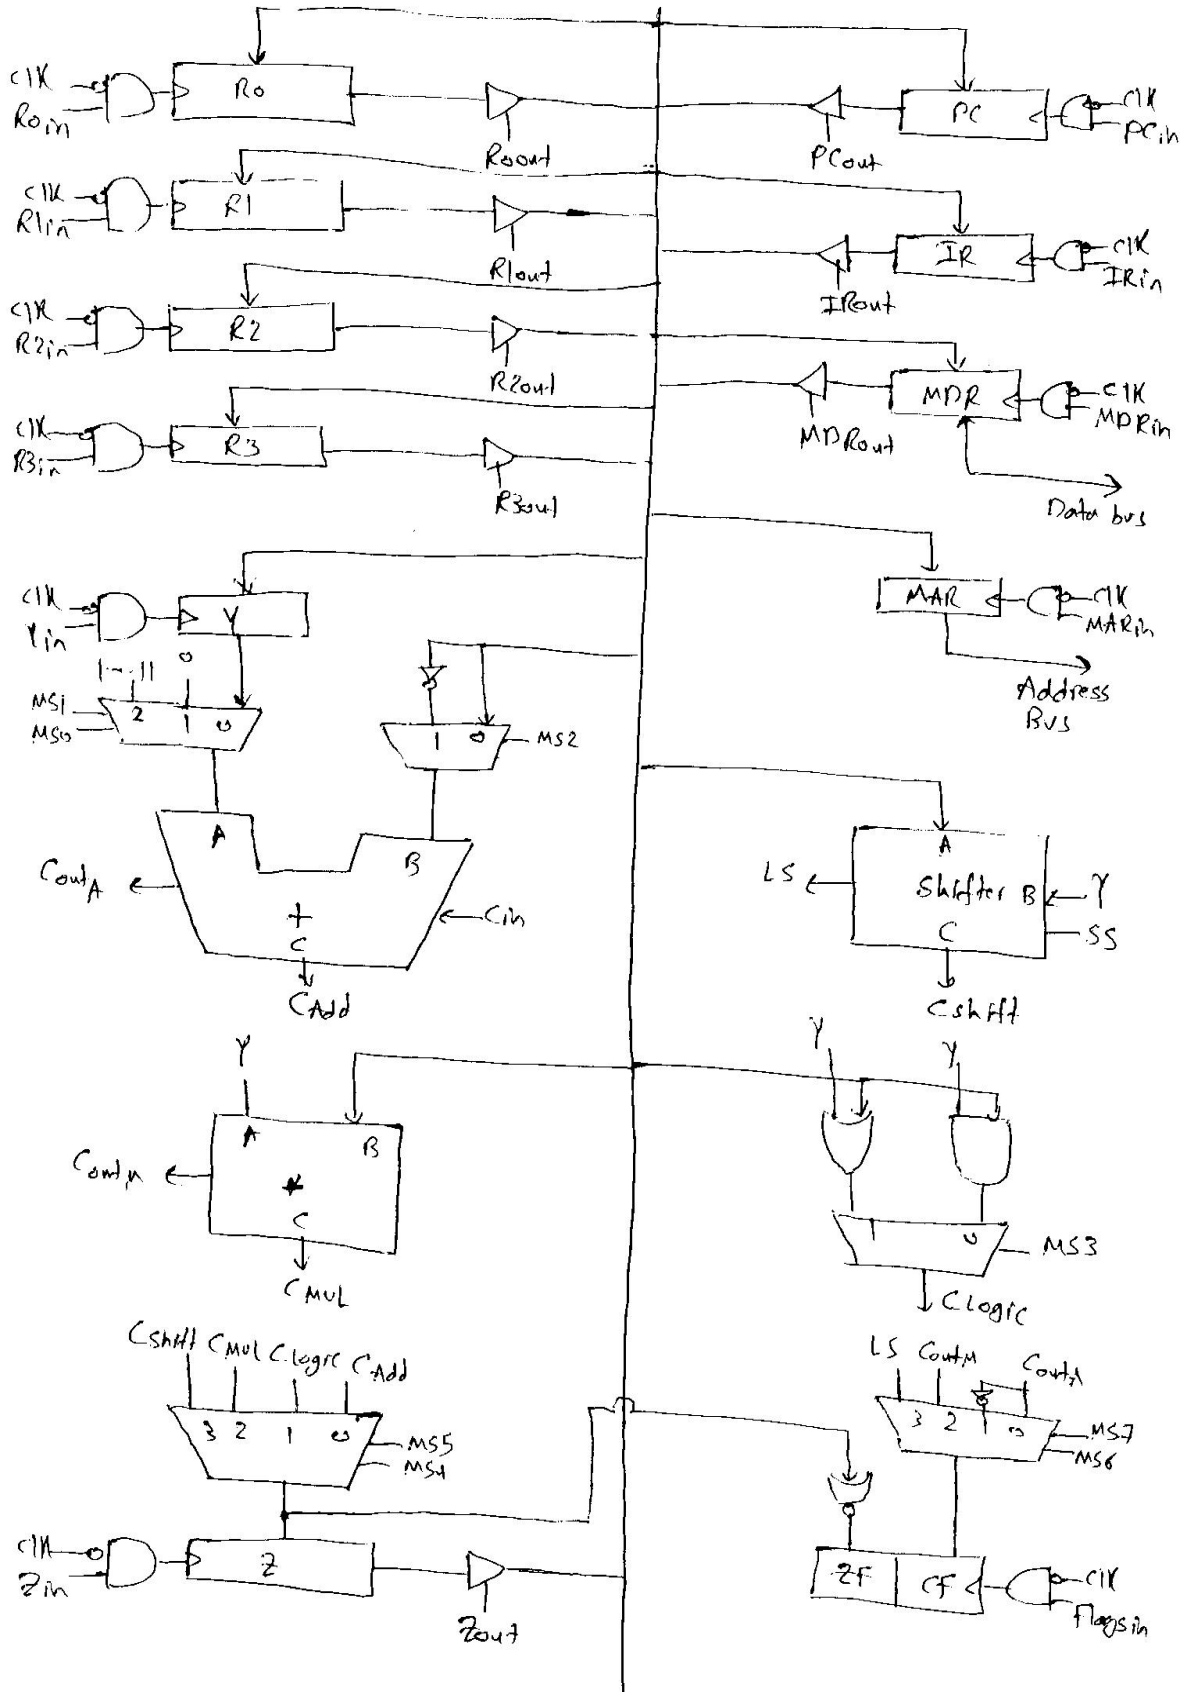 CLK
R0in
R0
R0out
PCout
PC
CLK
PCin
CLK
R1in
R1
R1out
IRout
IR
CLK
IRin
CLK
R2in
R2
R2out
MDRout
MDR
CLK
MDRin
CLK
R3in
R3
R3out
Data bus
CLK
Yin
Y
MAR
CLK
MARin
Address
Bus
1---11
0
MS1
MS0
2 1 0
1 0
MS2
A
B
CoutA
+
C
Cin
CAdd
A
LS
Shifter
B
Y
C
SS
Cshift
Y
Y
Y
A
B
CoutM
*
C
CMUL
1 0
MS3
CLogic
Cshift CMUL CLogic CAdd
3 2 1 0
MS5
MS4
LS CoutM CoutA
3 2 1 0
MS7
MS6
CLK
Zin
Z
Zout
ZF
CF
CLK
Flagsin